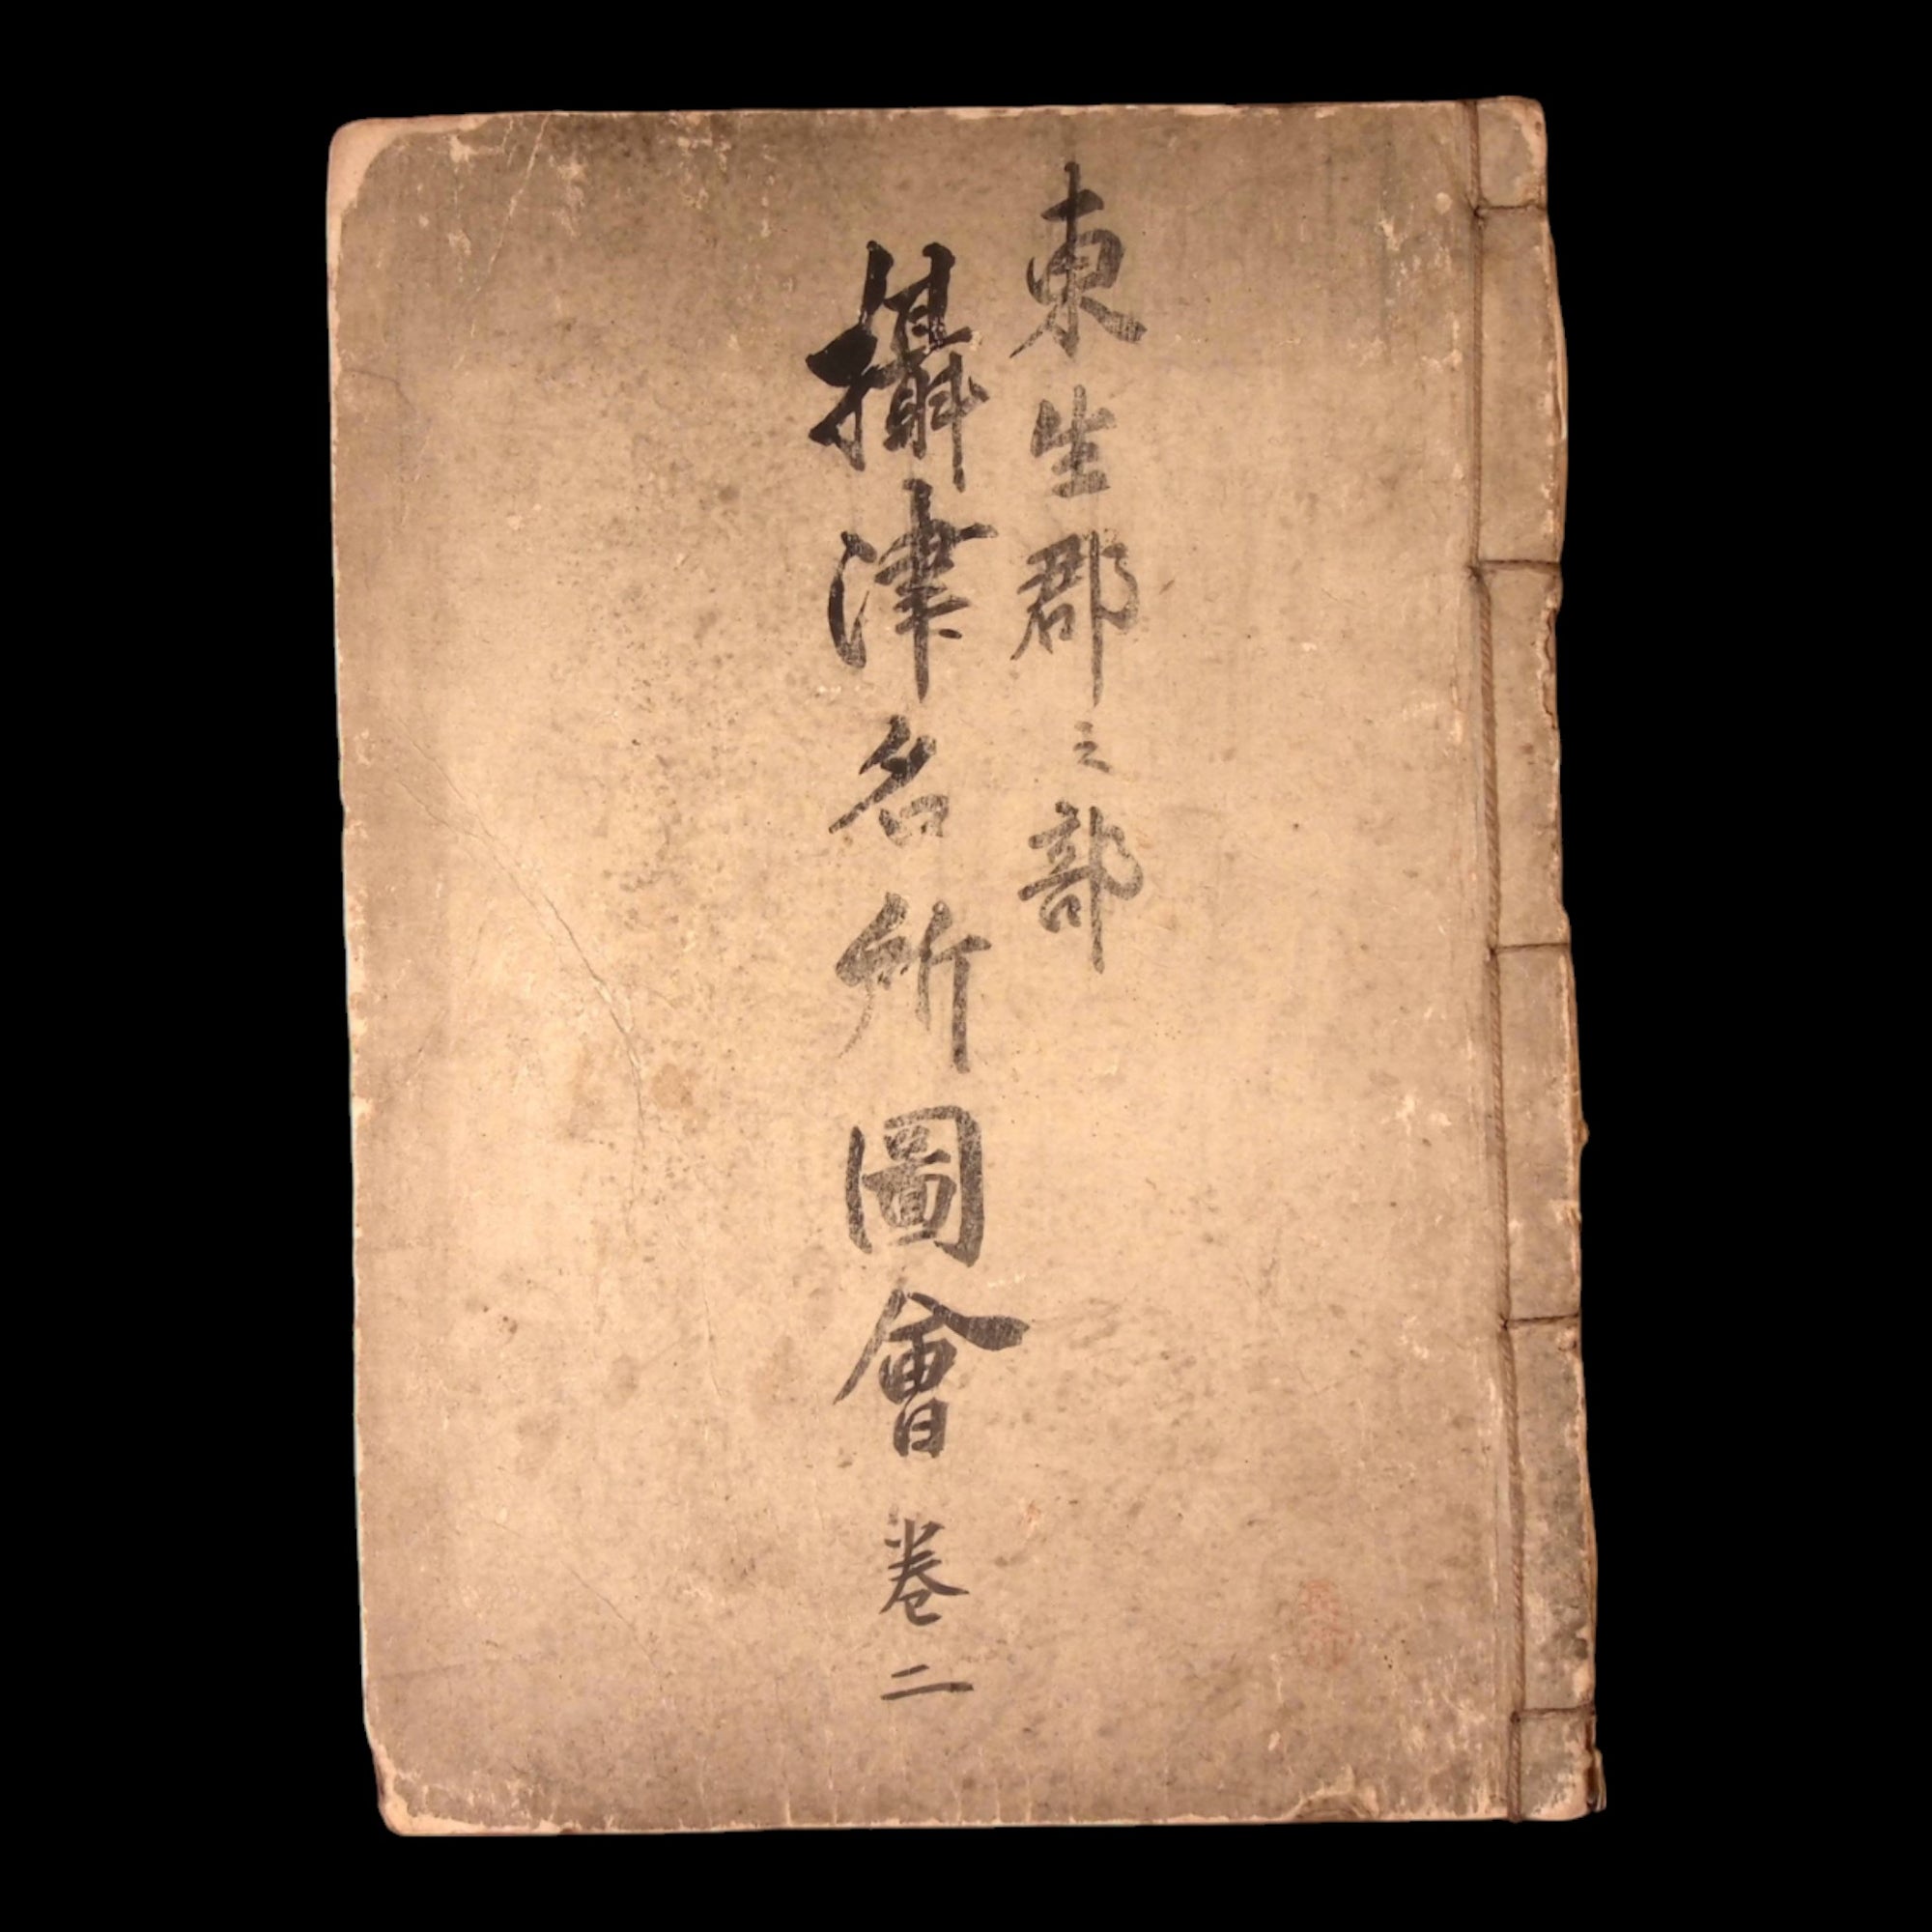 東生郡之部
攝津名所圖會卷二